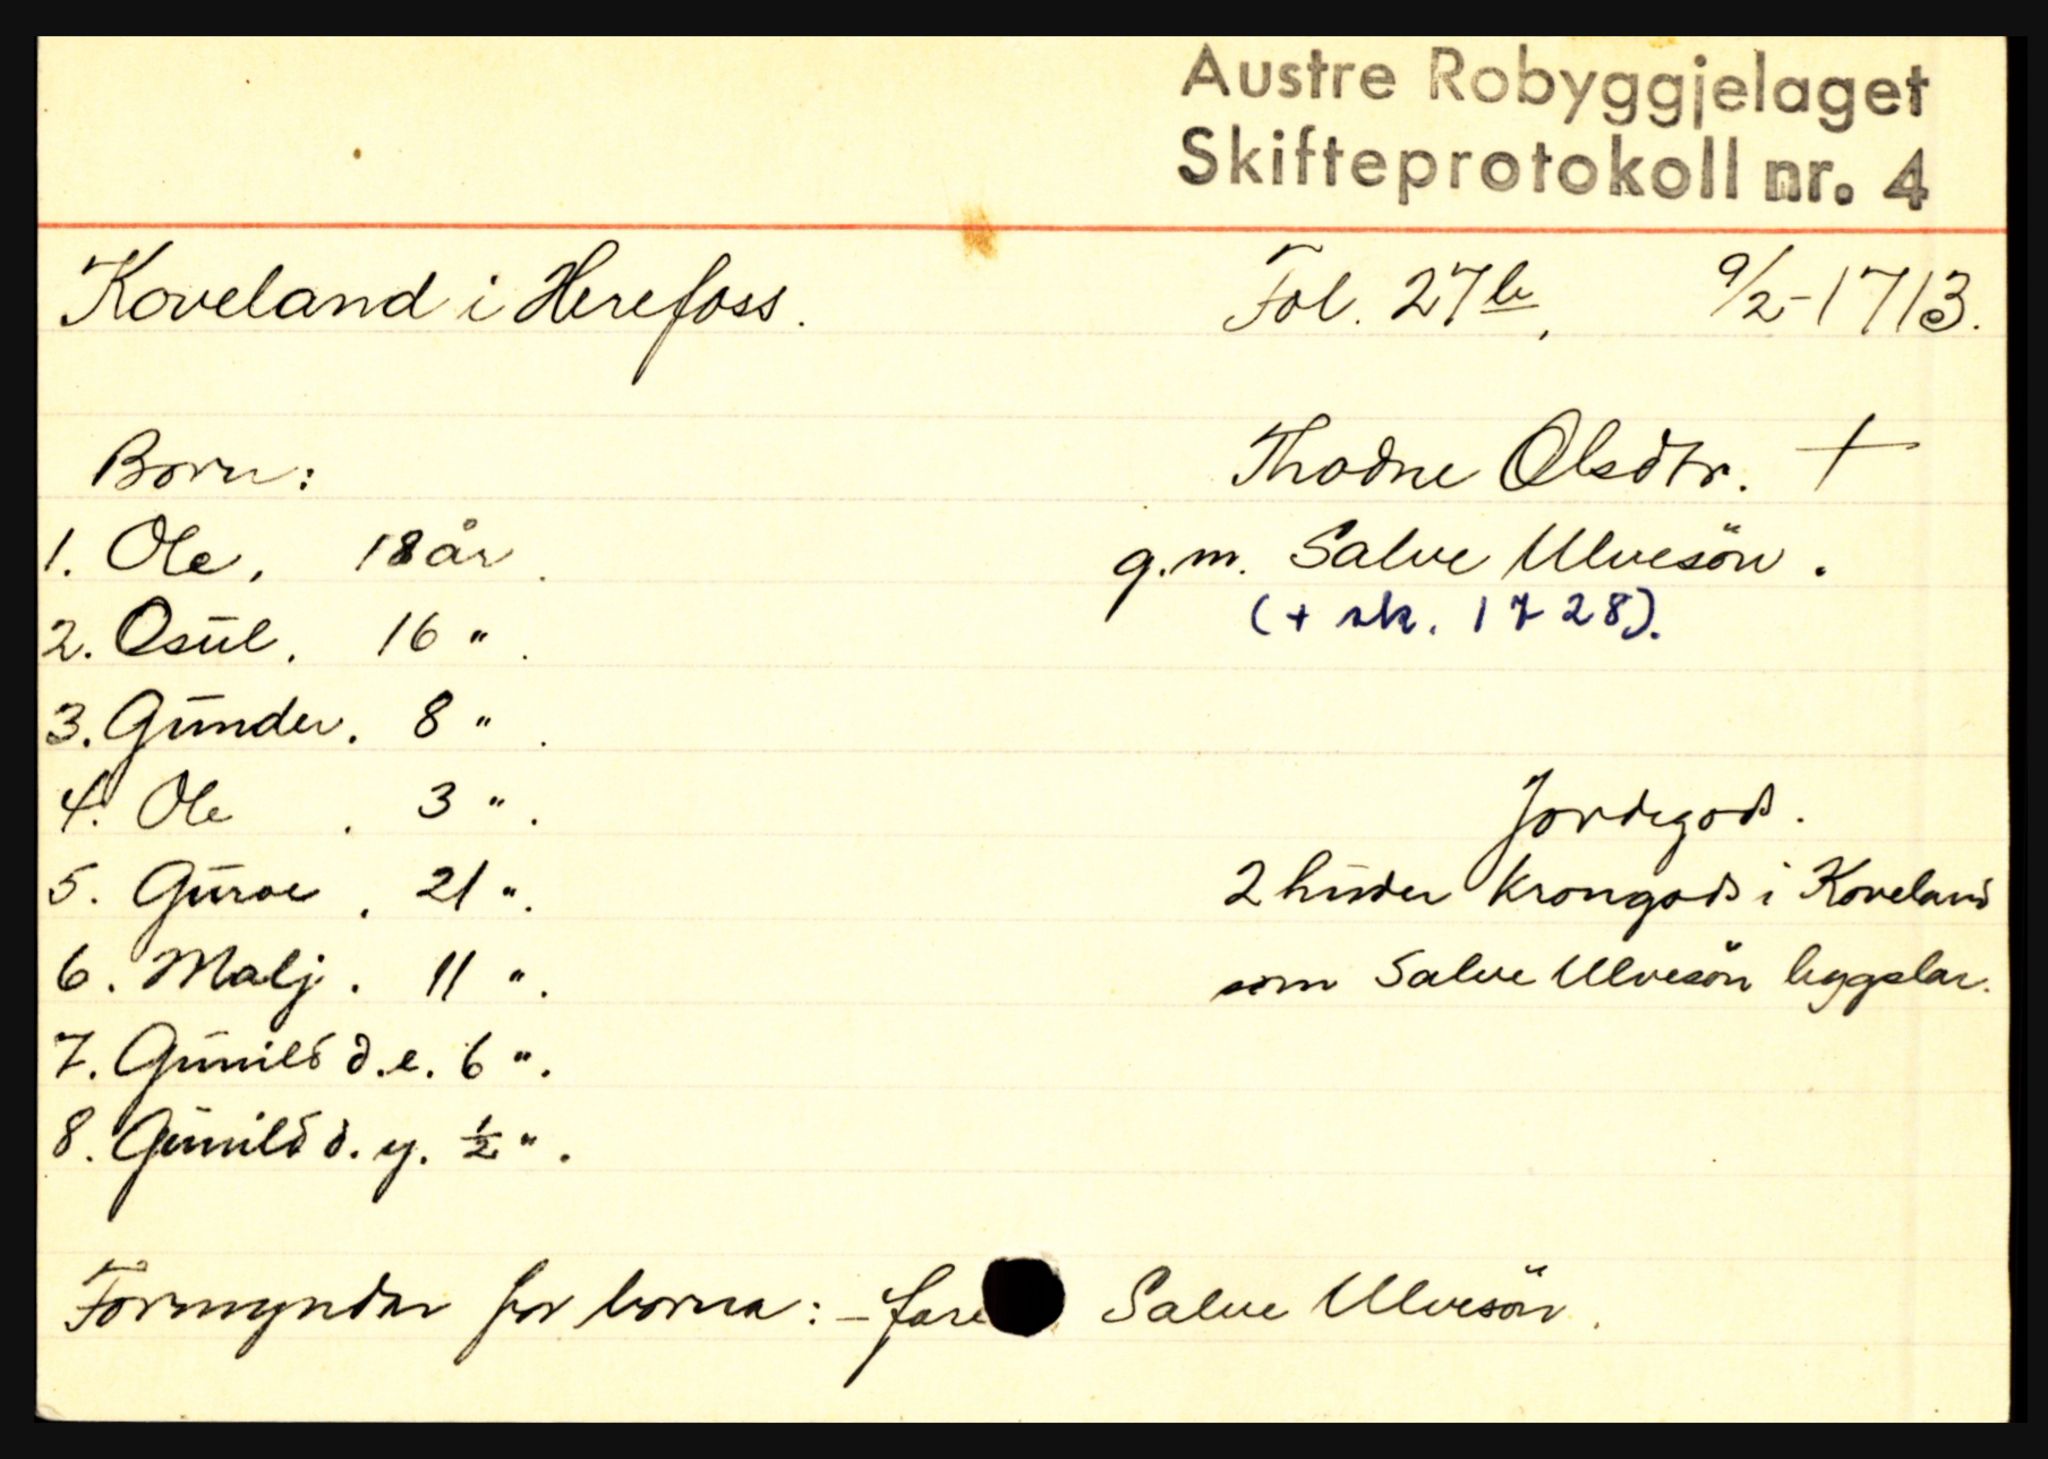 Austre Robyggjelaget
Skifteprotokoll nr. 4
Koveland i Herefoss. Fol. 27b, 9/2-1713.
Born: Thodne Olsdtr. +
1. Ole, 18 år. g.m. Salve Ulvesön.
2. Osūl. 16 ". (+ sk. 1728).
3. Gūnder. 8 ".
4. Ole . 3 ". Jordegods.
5. Gūroe . 21 ". 2 hūder Krongods i Koveland
6. Malj. 11 ". som Salve Ulvesön bygslar.
7. Gūnild d.e. 6 ".
8. Gūnild d.y. ½ ".
Formyndar for borna: - fare Salve Ulvesön.